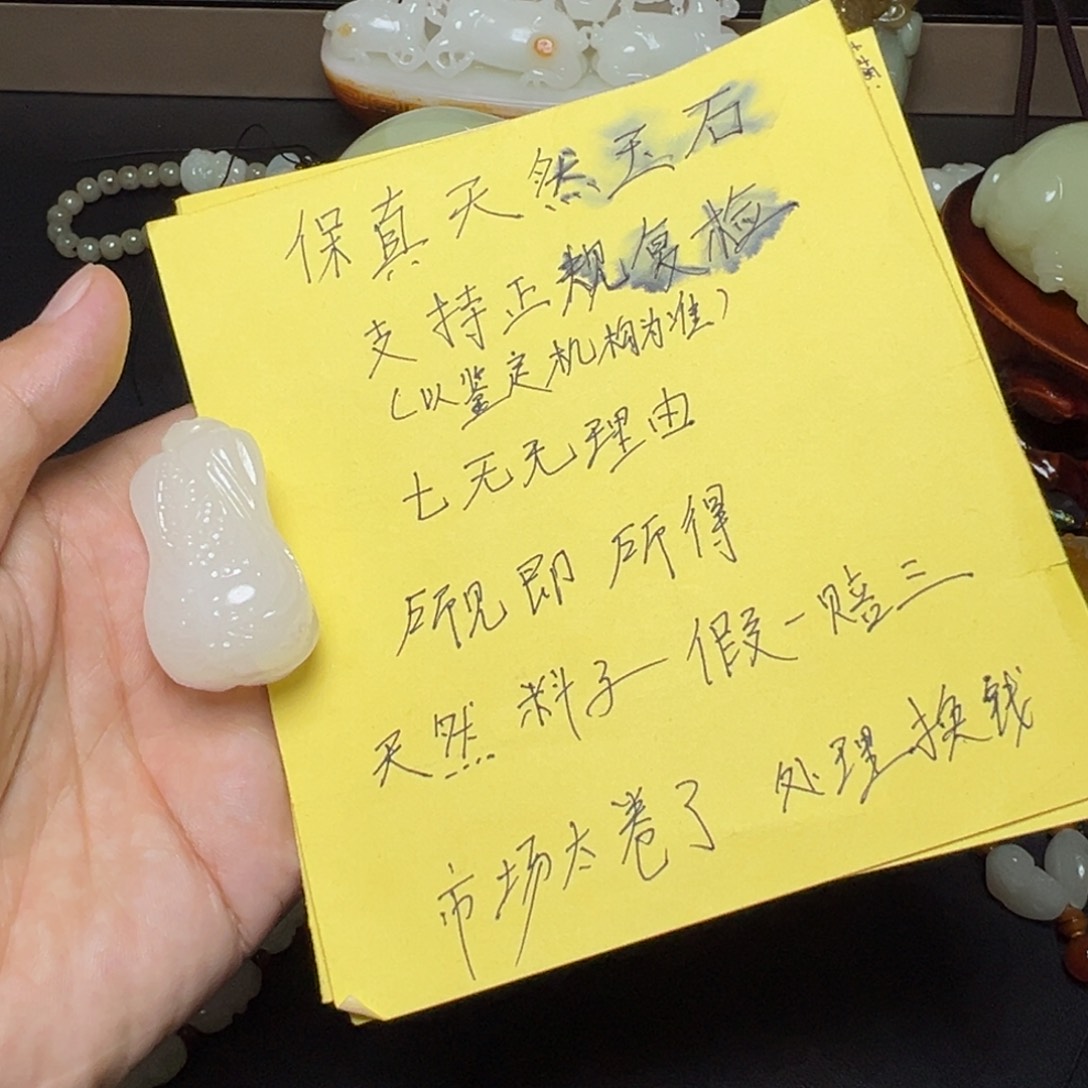 保真天然玉石
支持正规复检
(以鉴定机构为准)
七天无理由
所见即所得
天然料子一假一赔三
市场太卷了 处理换钱